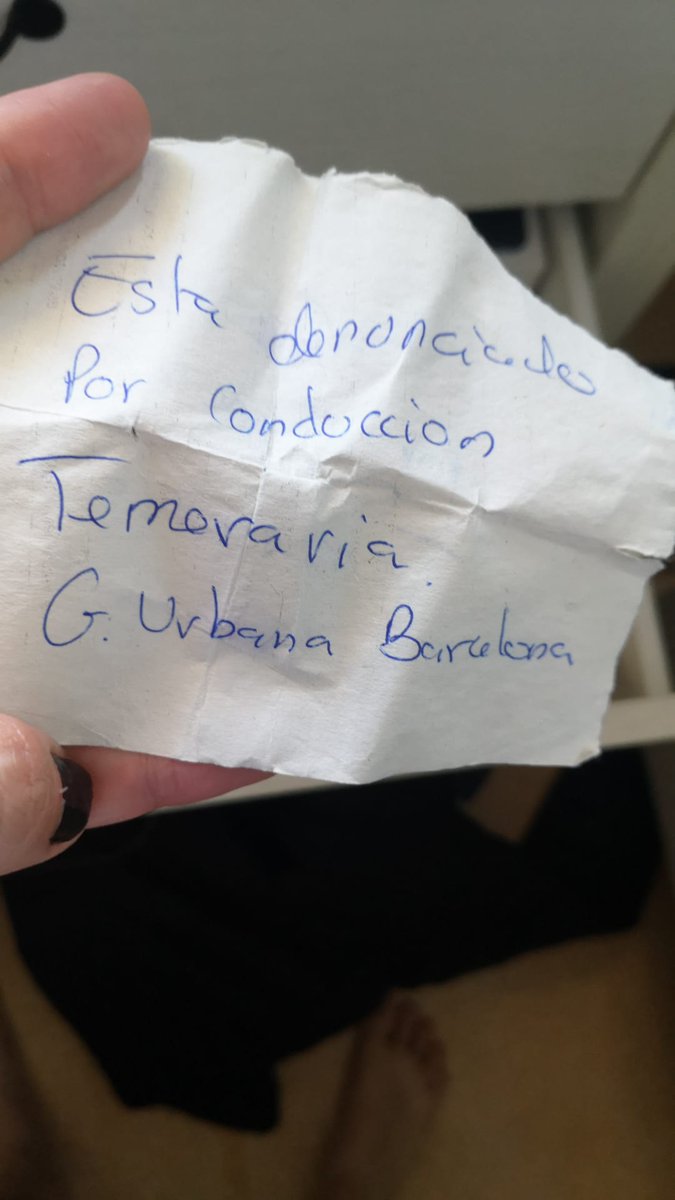 Esta denunciado
Por Conduccion
Temeraria.
G. Urbana Barcelona